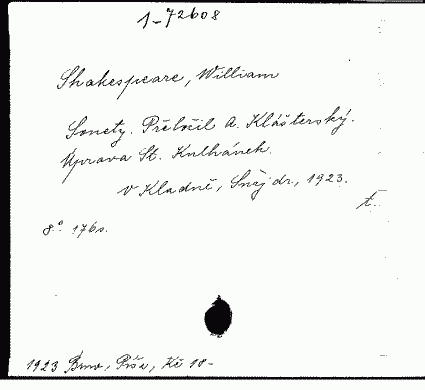 1-72608
Shakespeare, William
Sonety. Přeložil A. Klášterský.
Úprava St. Kulhánek.
V Kladně, Šnajdr, 1923.
t.
8° 176s.
1923 Brno, Píša, Kč 18-